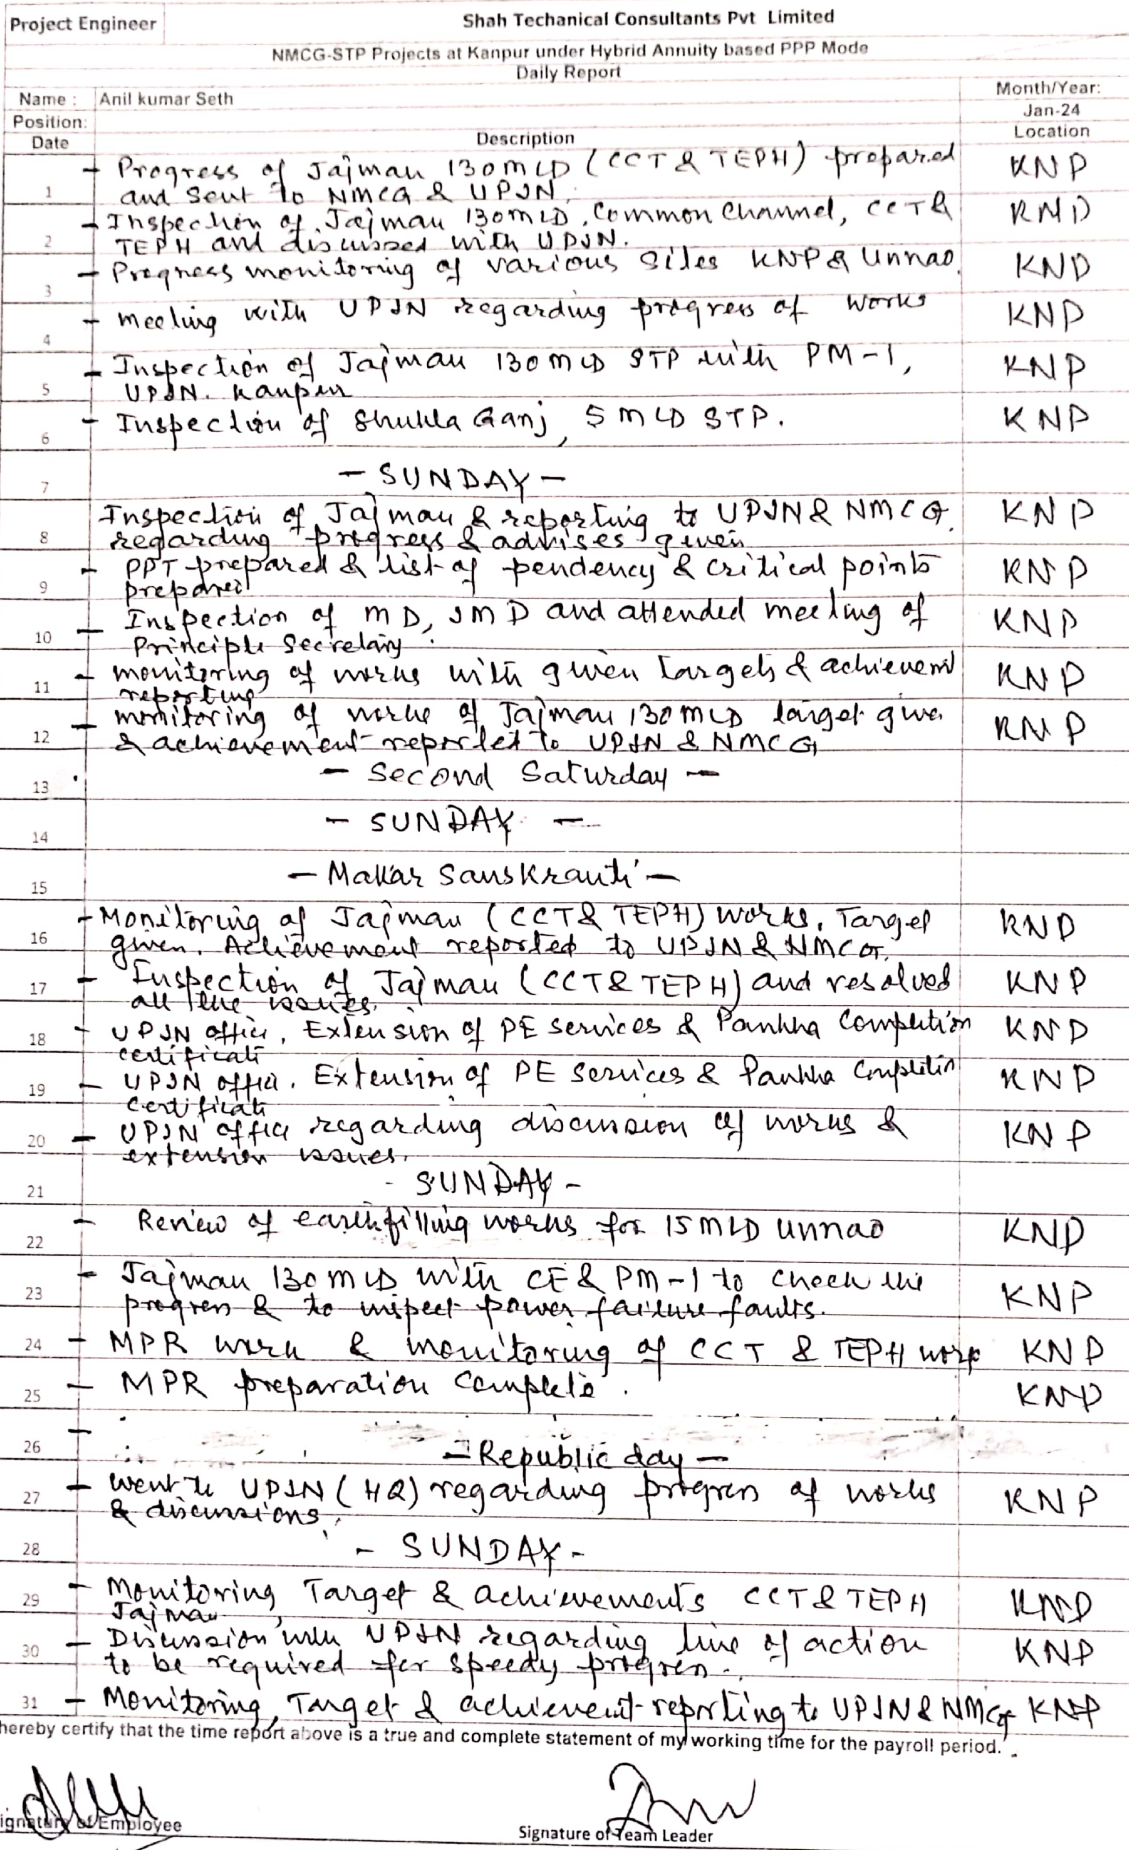 Project Engineer
Shah Techanical Consultants Pvt Limited
NMCG-STP Projects at Kanpur under Hybrid Annuity based PPP Mode
Daily Report
Name : Anil kumar Seth
Month/Year:
Position:
Jan-24
Date Description Location
1 - Progress of Jajmau 130 MLD (CCT & TEPH) prepared KNP
and sent to NMCG & UPJN.
2 - Inspection of Jajmau 130 MLD, Common Channel, CCT & KNP
TEPH and discussed with UPJN.
3 - Progress monitoring of various Sites KNP & Unnao. KNP
4 - meeting with UPJN regarding progress of works KNP
5 - Inspection of Jajmau 130 MLD STP with PM-1, KNP
UPJN. Kanpur
6 - Inspection of Shukla Ganj, 5 MLD STP. KNP
7 - SUNDAY -
8 Inspection of Jajmau & reporting to UPJN & NMCG. KNP
regarding progress & advises given
9 - PPT prepared & list of pendency & critical points KNP
prepared
10 - Inspection of MD, JMD and attended meeting of KNP
Principle Secretary.
11 - monitoring of works with given targets & achievemt KNP
reporting
12 - monitoring of works of Jajmau 130 MLD target give KNP
& achievement reported to UPJN & NMCG
13 - Second Saturday -
14 - SUNDAY -
15 - Makar Sanskranti -
16 - Monitoring of Jajmau (CCT & TEPH) works. Target KNP
given. Achievement reported to UPJN & NMCG.
17 - Inspection of Jajmau (CCT & TEPH) and resolved KNP
all the issues.
18 - UPJN office, Extension of PE services & Pankha Completion KNP
certificate
19 - UPJN office. Extension of PE services & Pankha Completin KNP
certificate
20 - UPJN office regarding discussion of works & KNP
extension issues.
21 - SUNDAY -
22 - Review of earthfilling works for 15 MLD Unnao KNP
23 - Jajmau 130 MLD with CE & PM-1 to check the KNP
progress & to inspect power failure faults.
24 - MPR work & monitoring of CCT & TEPH work KNP
25 - MPR preparation complete. KNP
26 - - Republic day -
27 - went to UPJN (HQ) regarding progress of works KNP
& discussions.
28 - SUNDAY -
29 - Monitoring Target & achievements CCT & TEPH KNP
Jajmau
30 - Discussion with UPJN regarding line of action KNP
to be required for speedy progress.
31 - Monitoring, Target & achievement reporting to UPJN & NMCG KNP
hereby certify that the time report above is a true and complete statement of my working time for the payroll period.
ignature of Employee
Signature of Team Leader